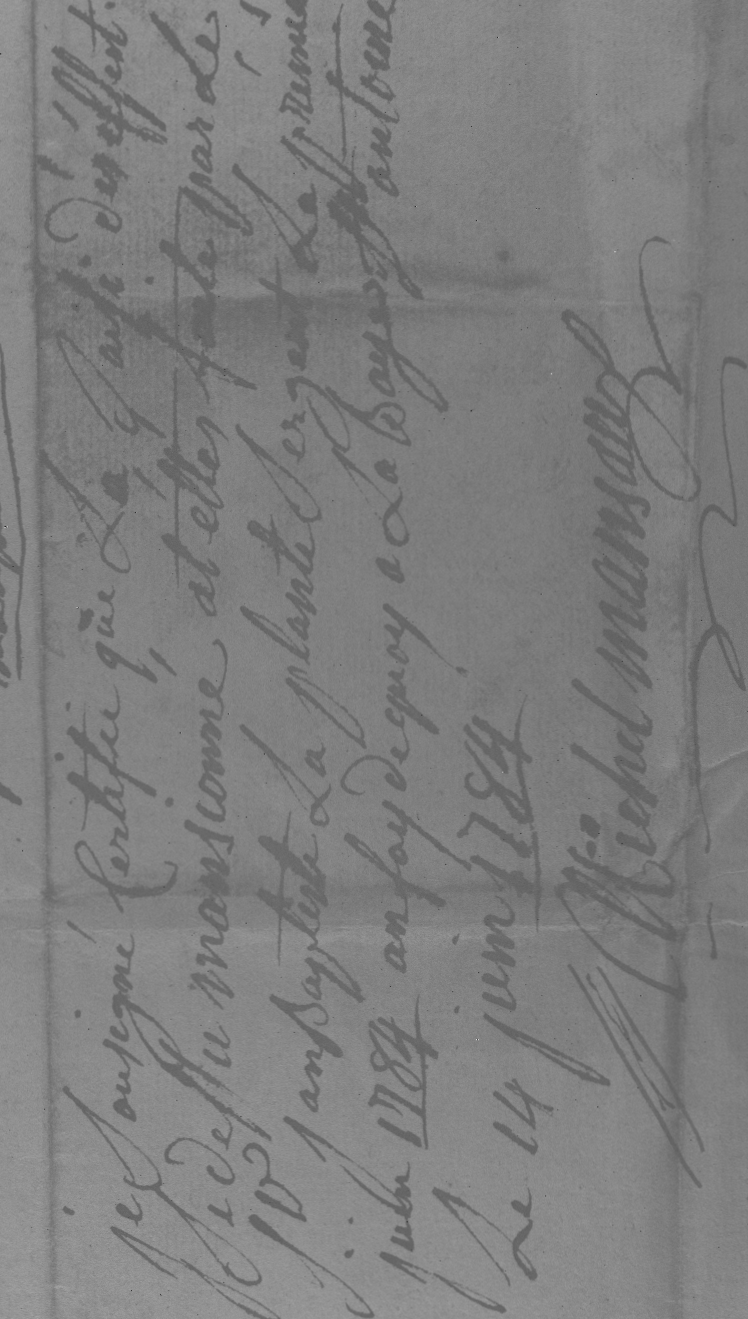 je Sousigné Certifie que La Saisi des effest
Sedessu mansionne at ettes faite par Le
Sr janBaptiste La plante Sergent Le premie
juin 1784 an foy de quoy a La Baye St antoine
Le 14 juin 1784
Michel mansau